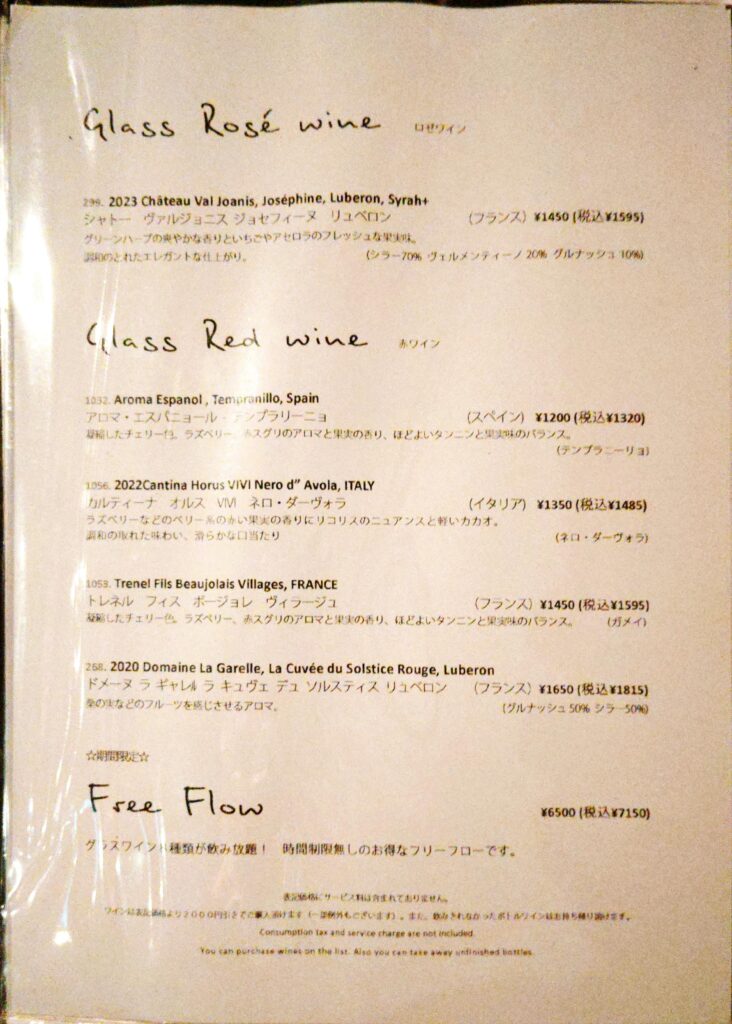 Glass Rosé wine ロゼワイン
299. 2023 Château Val Joanis, Joséphine, Luberon, Syrah+
シャトー ヴァルジョニス ジョセフィーヌ リュベロン (フランス) ¥1450 (税込¥1595)
グリーンハーブの爽やかな香りといちごやアセロラのフレッシュな果実味。
調和のとれたエレガントな仕上がり。 (シラー70% ヴェルメンティーノ 20% グルナッシュ 10%)
Glass Red wine 赤ワイン
1032. Aroma Espanol , Tempranillo, Spain
アロマ・エスパニョール - テンプラリーニョ (スペイン) ¥1200 (税込¥1320)
凝縮したチェリー色。ラズベリー、赤スグリのアロマと果実の香り、ほどよいタンニンと果実味のバランス。
(テンプラニーリョ)
1056. 2022Cantina Horus VIVI Nero d” Avola, ITALY
カルティーナ オルス VIVI ネロ・ダーヴォラ (イタリア) ¥1350 (税込¥1485)
ラズベリーなどのベリー系の赤い果実の香りにリコリスのニュアンスと軽いカカオ。
調和の取れた味わい、滑らかな口当たり (ネロ・ダーヴォラ)
1053. Trenel Fils Beaujolais Villages, FRANCE
トレネル フィス ボージョレ ヴィラージュ (フランス) ¥1450 (税込¥1595)
凝縮したチェリー色。ラズベリー、赤スグリのアロマと果実の香り、ほどよいタンニンと果実味のバランス。 (ガメイ)
268. 2020 Domaine La Garelle, La Cuvée du Solstice Rouge, Luberon
ドメーヌ ラ ギャレル ラ キュヴェ デュ ソルスティス リュベロン (フランス) ¥1650 (税込¥1815)
桑の実などのフルーツを感じさせるアロマ。 (グルナッシュ 50% シラー50%)
☆期間限定☆
Free Flow ¥6500 (税込¥7150)
グラスワイン 種類が飲み放題! 時間制限無しのお得なフリーフローです。
表記価格にサービス料は含まれておりません。
ワインは表記価格より2000円引きでご購入頂けます(一部例外もございます)。また、飲みきれなかったボトルワインはお持ち帰り頂けます。
Consumption tax and service charge are not included.
You can purchase wines on the list. Also you can take away unfinished bottles.